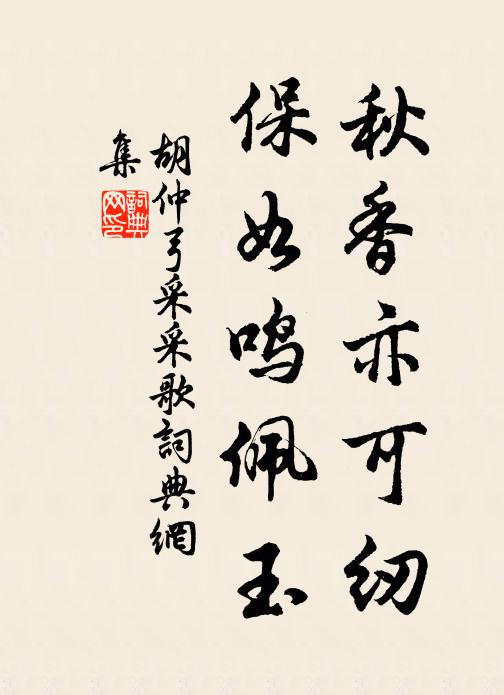 秋香亦可纫
保如鸣佩玉
胡仲弓采采歌詞典網
集
詞典
网印